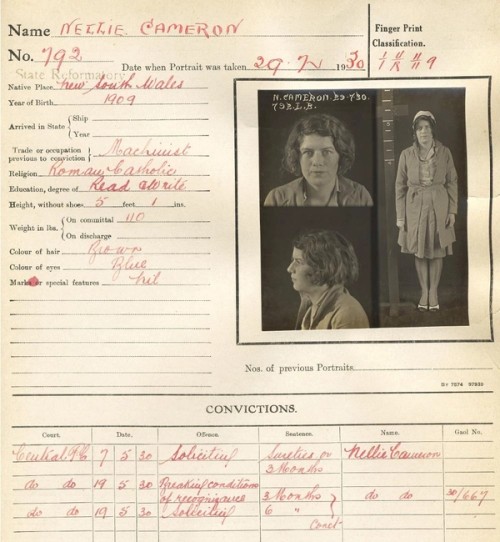 Name NELLIE CAMERON
No. 792
Date when Portrait was taken 29-7-1930
Finger Print
Classification.
State Reformatory
Native Place New South Wales
Year of Birth 1909
Arrived in State { Ship
Year
Trade or occupation previous to conviction } Machinist
Religion Roman Catholic
Education, degree of Read & Write
Height, without shoes 5 feet 1 ins.
Weight in lbs. { On committal 110
On discharge
Colour of hair Brown
Colour of eyes Blue
Marks or special features Nil
N. CAMERON. 29-7-30.
792. L.B.
Nos. of previous Portraits
CONVICTIONS.
Court. Date. Offence. Sentence. Name. Gaol No.
Central P.C. 7 5 30 Soliciting Sureties or 3 Months Nellie Cameron
do do 19 5 30 Breaking conditions of recognizance 3 Months do do 30/667
do do 19 5 30 Soliciting 6 "